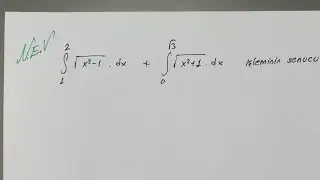 N.E.V
∫₁² √(x²-1) . dx + ∫₀^√3 √(x²+1) . dx işleminin sonucu